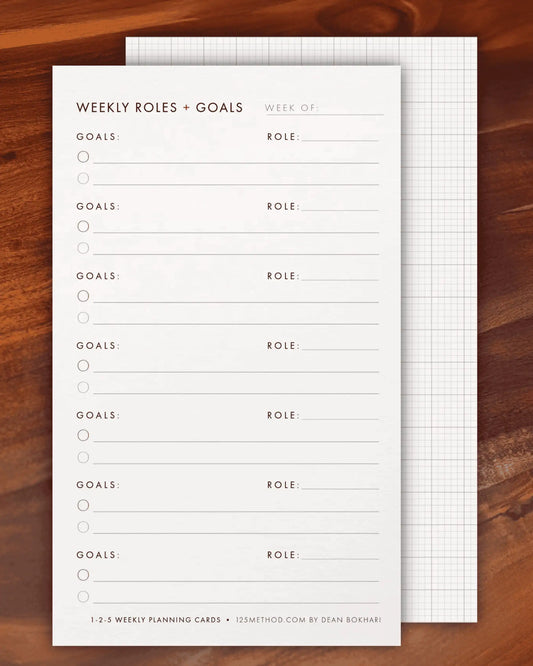 WEEKLY ROLES + GOALS WEEK OF:
GOALS: ROLE:
GOALS: ROLE:
GOALS: ROLE:
GOALS: ROLE:
GOALS: ROLE:
GOALS: ROLE:
GOALS: ROLE:
1-2-5 WEEKLY PLANNING CARDS • 125METHOD.COM BY DEAN BOKHARI